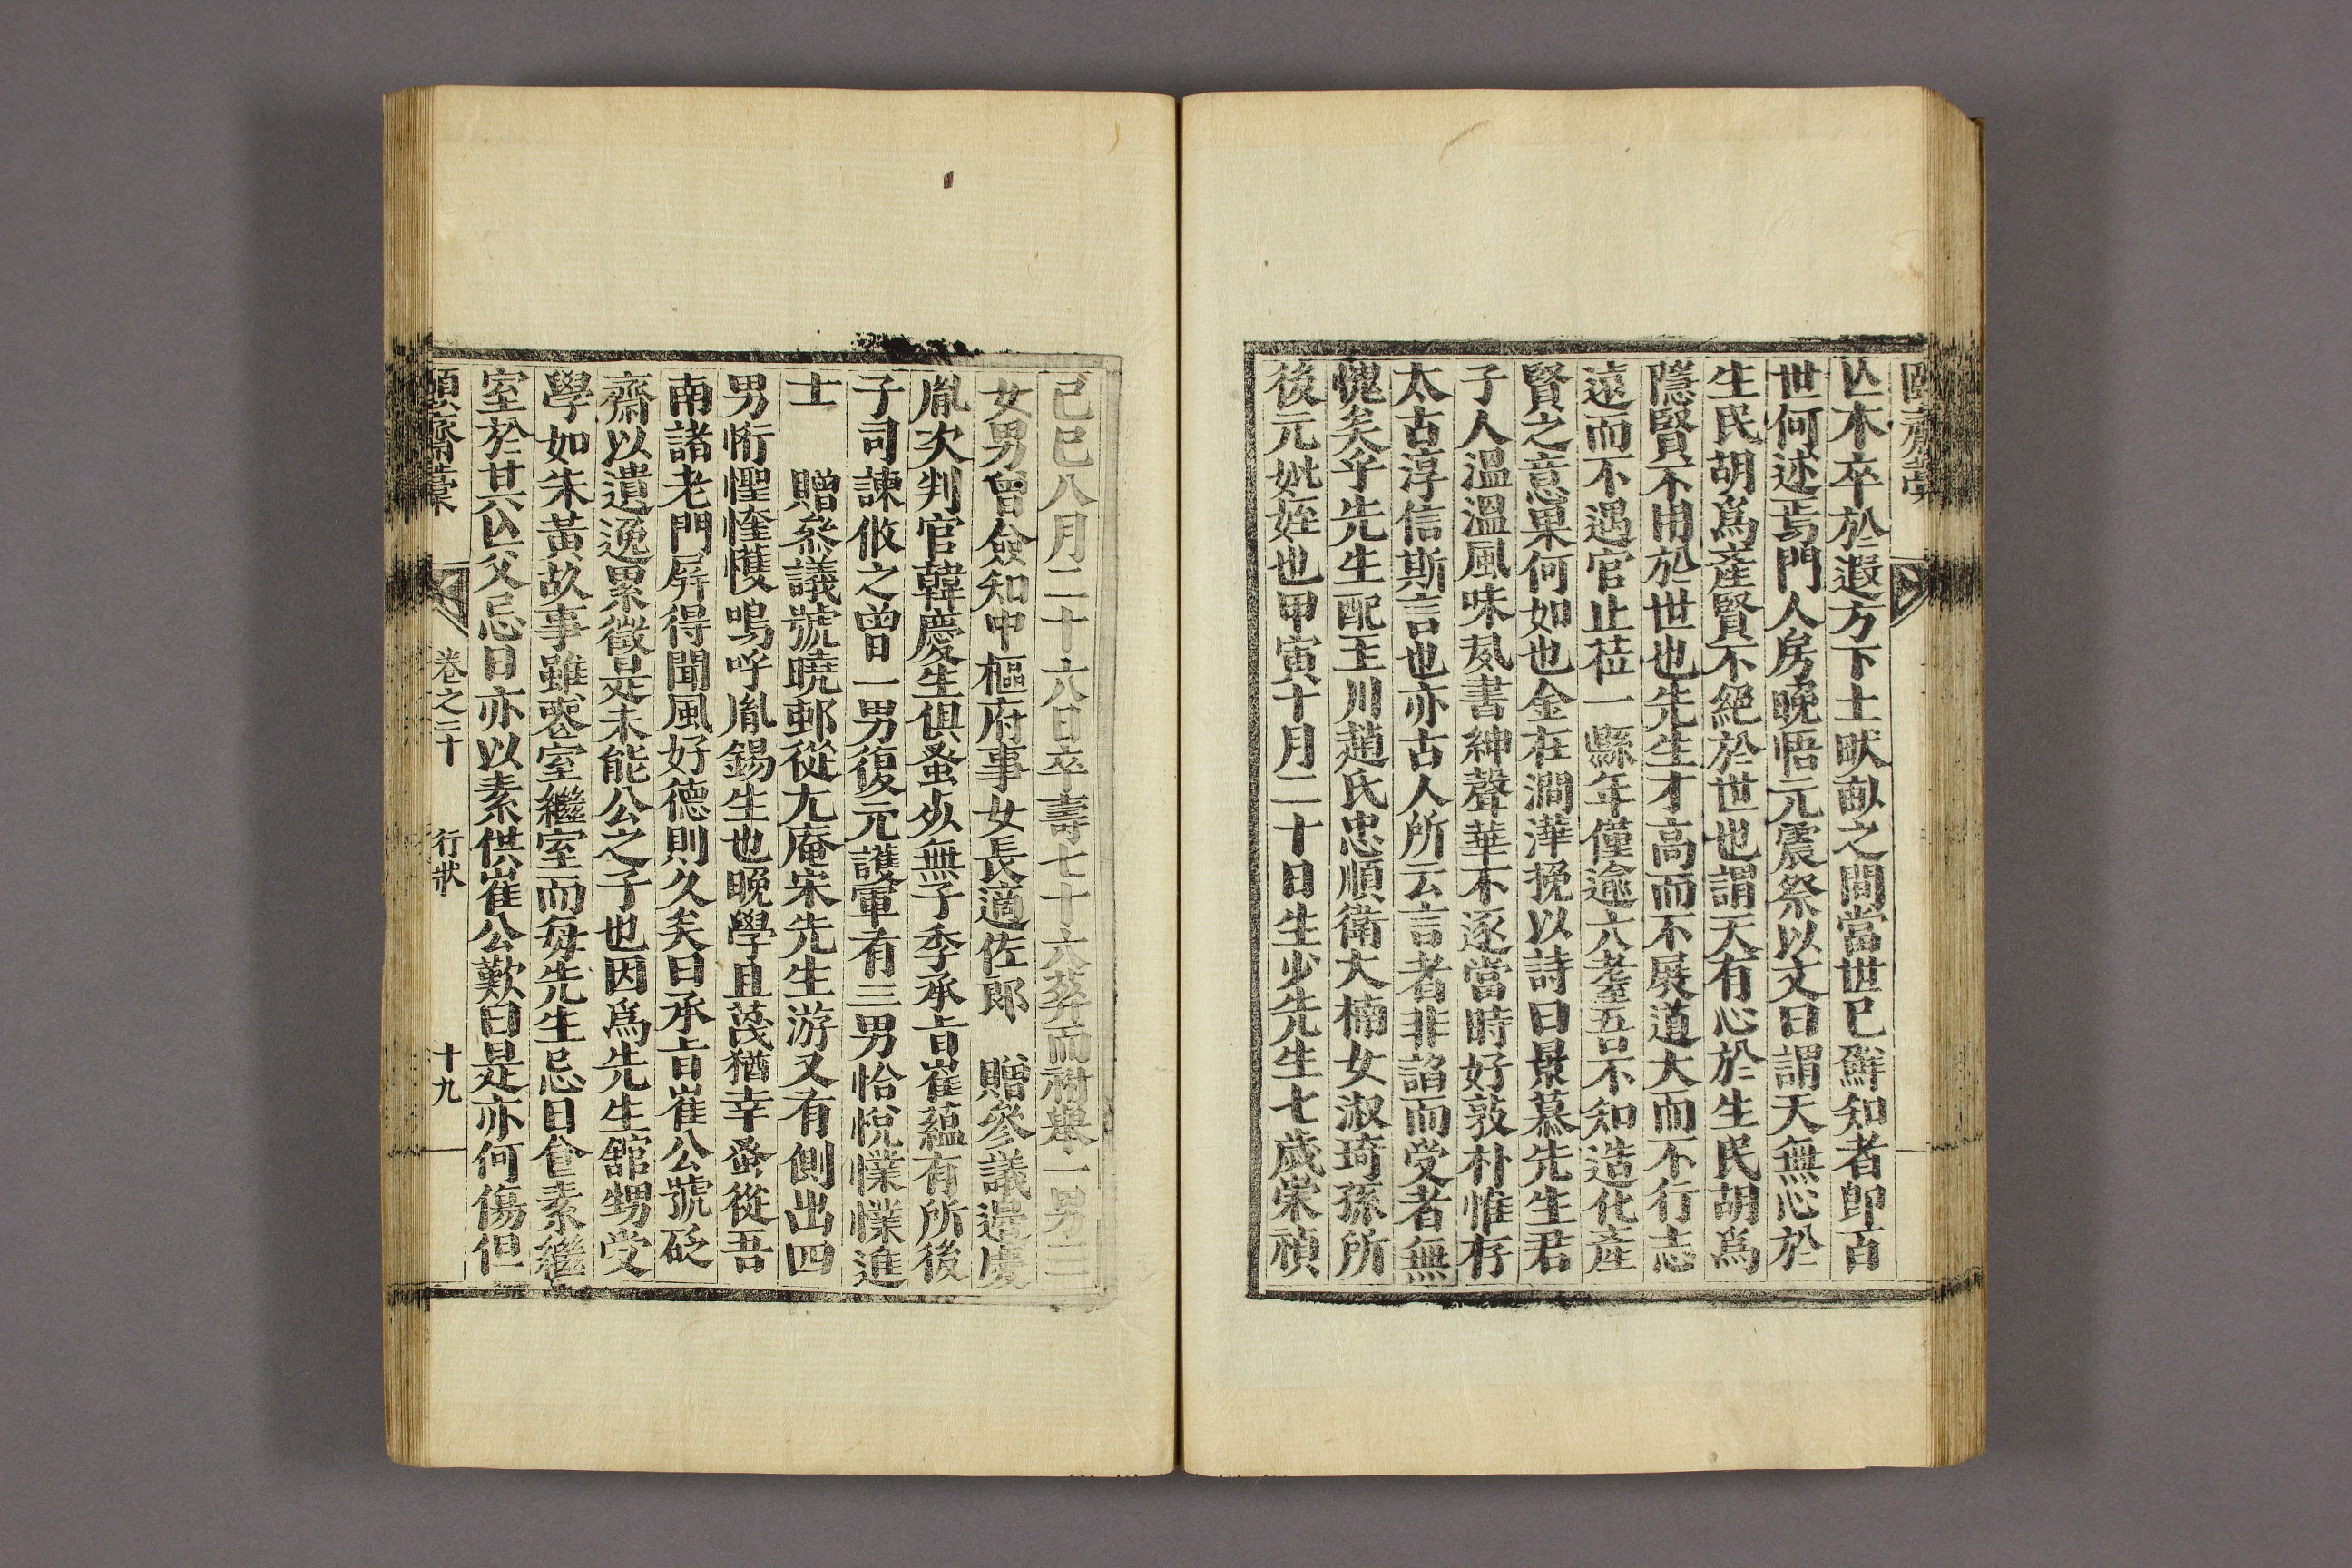 亾木卒於遐方下土畎畝之間當世已鮮知者卽百
世何述焉門人房晩悟元震祭以文曰謂天無心於
生民胡爲產賢不絕於世也謂天有心於生民胡爲
隱賢不用於世也先生才高而不展道大而不行志
遠而不遇官止莅一縣年僅逾六耋吾不知造化產
賢之意果何如也金在澗澕挽以詩曰景慕先生君
子人溫溫風味夙書紳聲華不逐當時好敦朴惟存
太古淳信斯言也亦古人所云言者非諂而受者無
愧矣乎先生配玉川趙氏忠順衛大楠女淑琦孫所
後元妣姪也甲寅十月二十日生少先生七歲宋禎
己巳八月二十六日卒壽七十六葬而祔擧一男三
女男曾僉知中樞府事女長適佐郎 贈參議邊慶
胤次判官韓慶生俱蚤歾無子季承旨崔蘊有所後
子司諫攸之曾一男復元護軍有三男恰悅㦡㦡進
士 贈參議號曉邨從尢庵宋先生游又有側出四
男㤚㦤慛㦜嗚呼胤錫生也晚學且蔑猶幸蚤從吾
南諸老門屛得聞風好德則久矣曰承旨崔公號砭
齋以遺逸累徵是未能公之子也因爲先生舘甥受
學如朱黃故事雖喪室繼室而每先生忌日飡素繼
室於其亾父忌日亦以素供崔公歎曰是亦何傷但
頤齋藁 卷之二十 行狀 十九